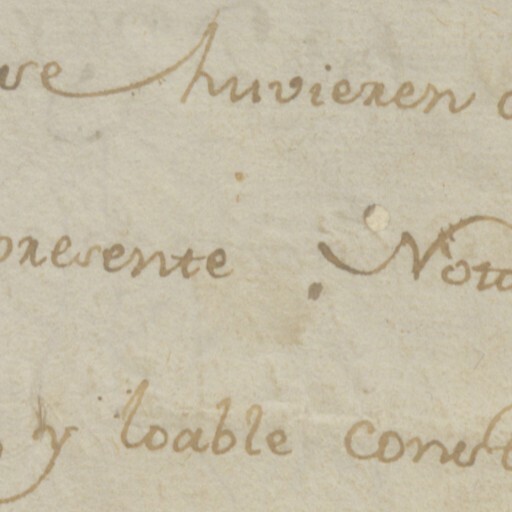 huvieren
presente Not
y loable const